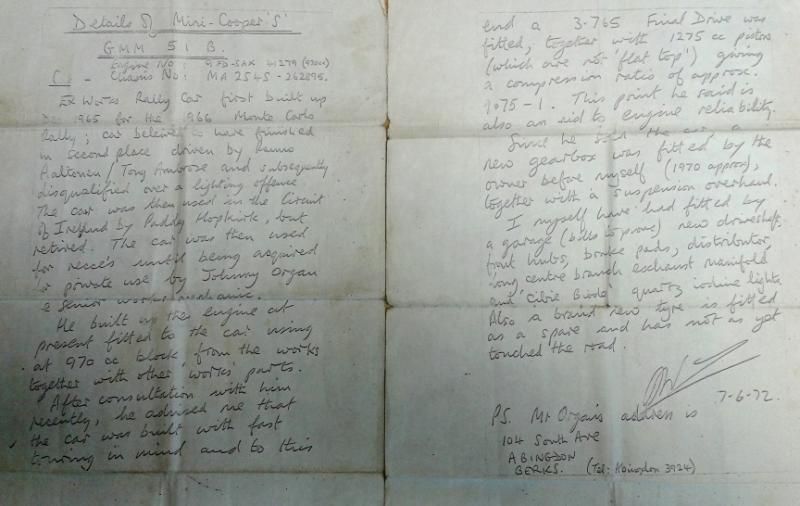 Details of Mini-Cooper 'S'
GMM 51 B.
Engine No: 9FD-SAX 41279 (970cc)
Chassis No: MA2S45-262895.
Ex Works Rally Car first built up
Dec 1965 for the 1966 Monte Carlo
Rally; car beleived to have finished
in second place driven by Rauno
Aaltonen/Tony Ambrose and subsequently
disqualified over a lighting offence.
The car was then used in the Circuit
of Ireland by Paddy Hopkirk, but
retired. The car was then used
for recce's until being acquired
for private use by Johnny Organ
a senior works mechanic.
He built up the engine at
present fitted to the car using
at 970 cc block, from the works
together with other works parts.
After consultation with him
recently, he advised me that
the car was built with fast
touring in mind and to this
end a 3.765 Final Drive was
fitted, together with 1275 cc pistons
(which are not 'flat top') giving
a compression ratio of approx.
9.75-1. This point he said is
also an aid to engine reliability.
Since he sold the car, a
new gearbox was fitted by the
owner before myself (1970 approx),
together with a suspension overhaul.
I myself have had fitted by
a garage (bills to prove) new driveshaft,
front hubs, brake pads, distributor,
long centre branch exhaust manifold
and 'Cibie Biode' quartz iodine lights.
Also a brand new tyre is fitted
as a spare and has not as yet
touched the road.
7-6-72.
PS. Mr Organ's address is
104 South Ave
ABINGDON
BERKS. (Tel: Abingdon 3924)